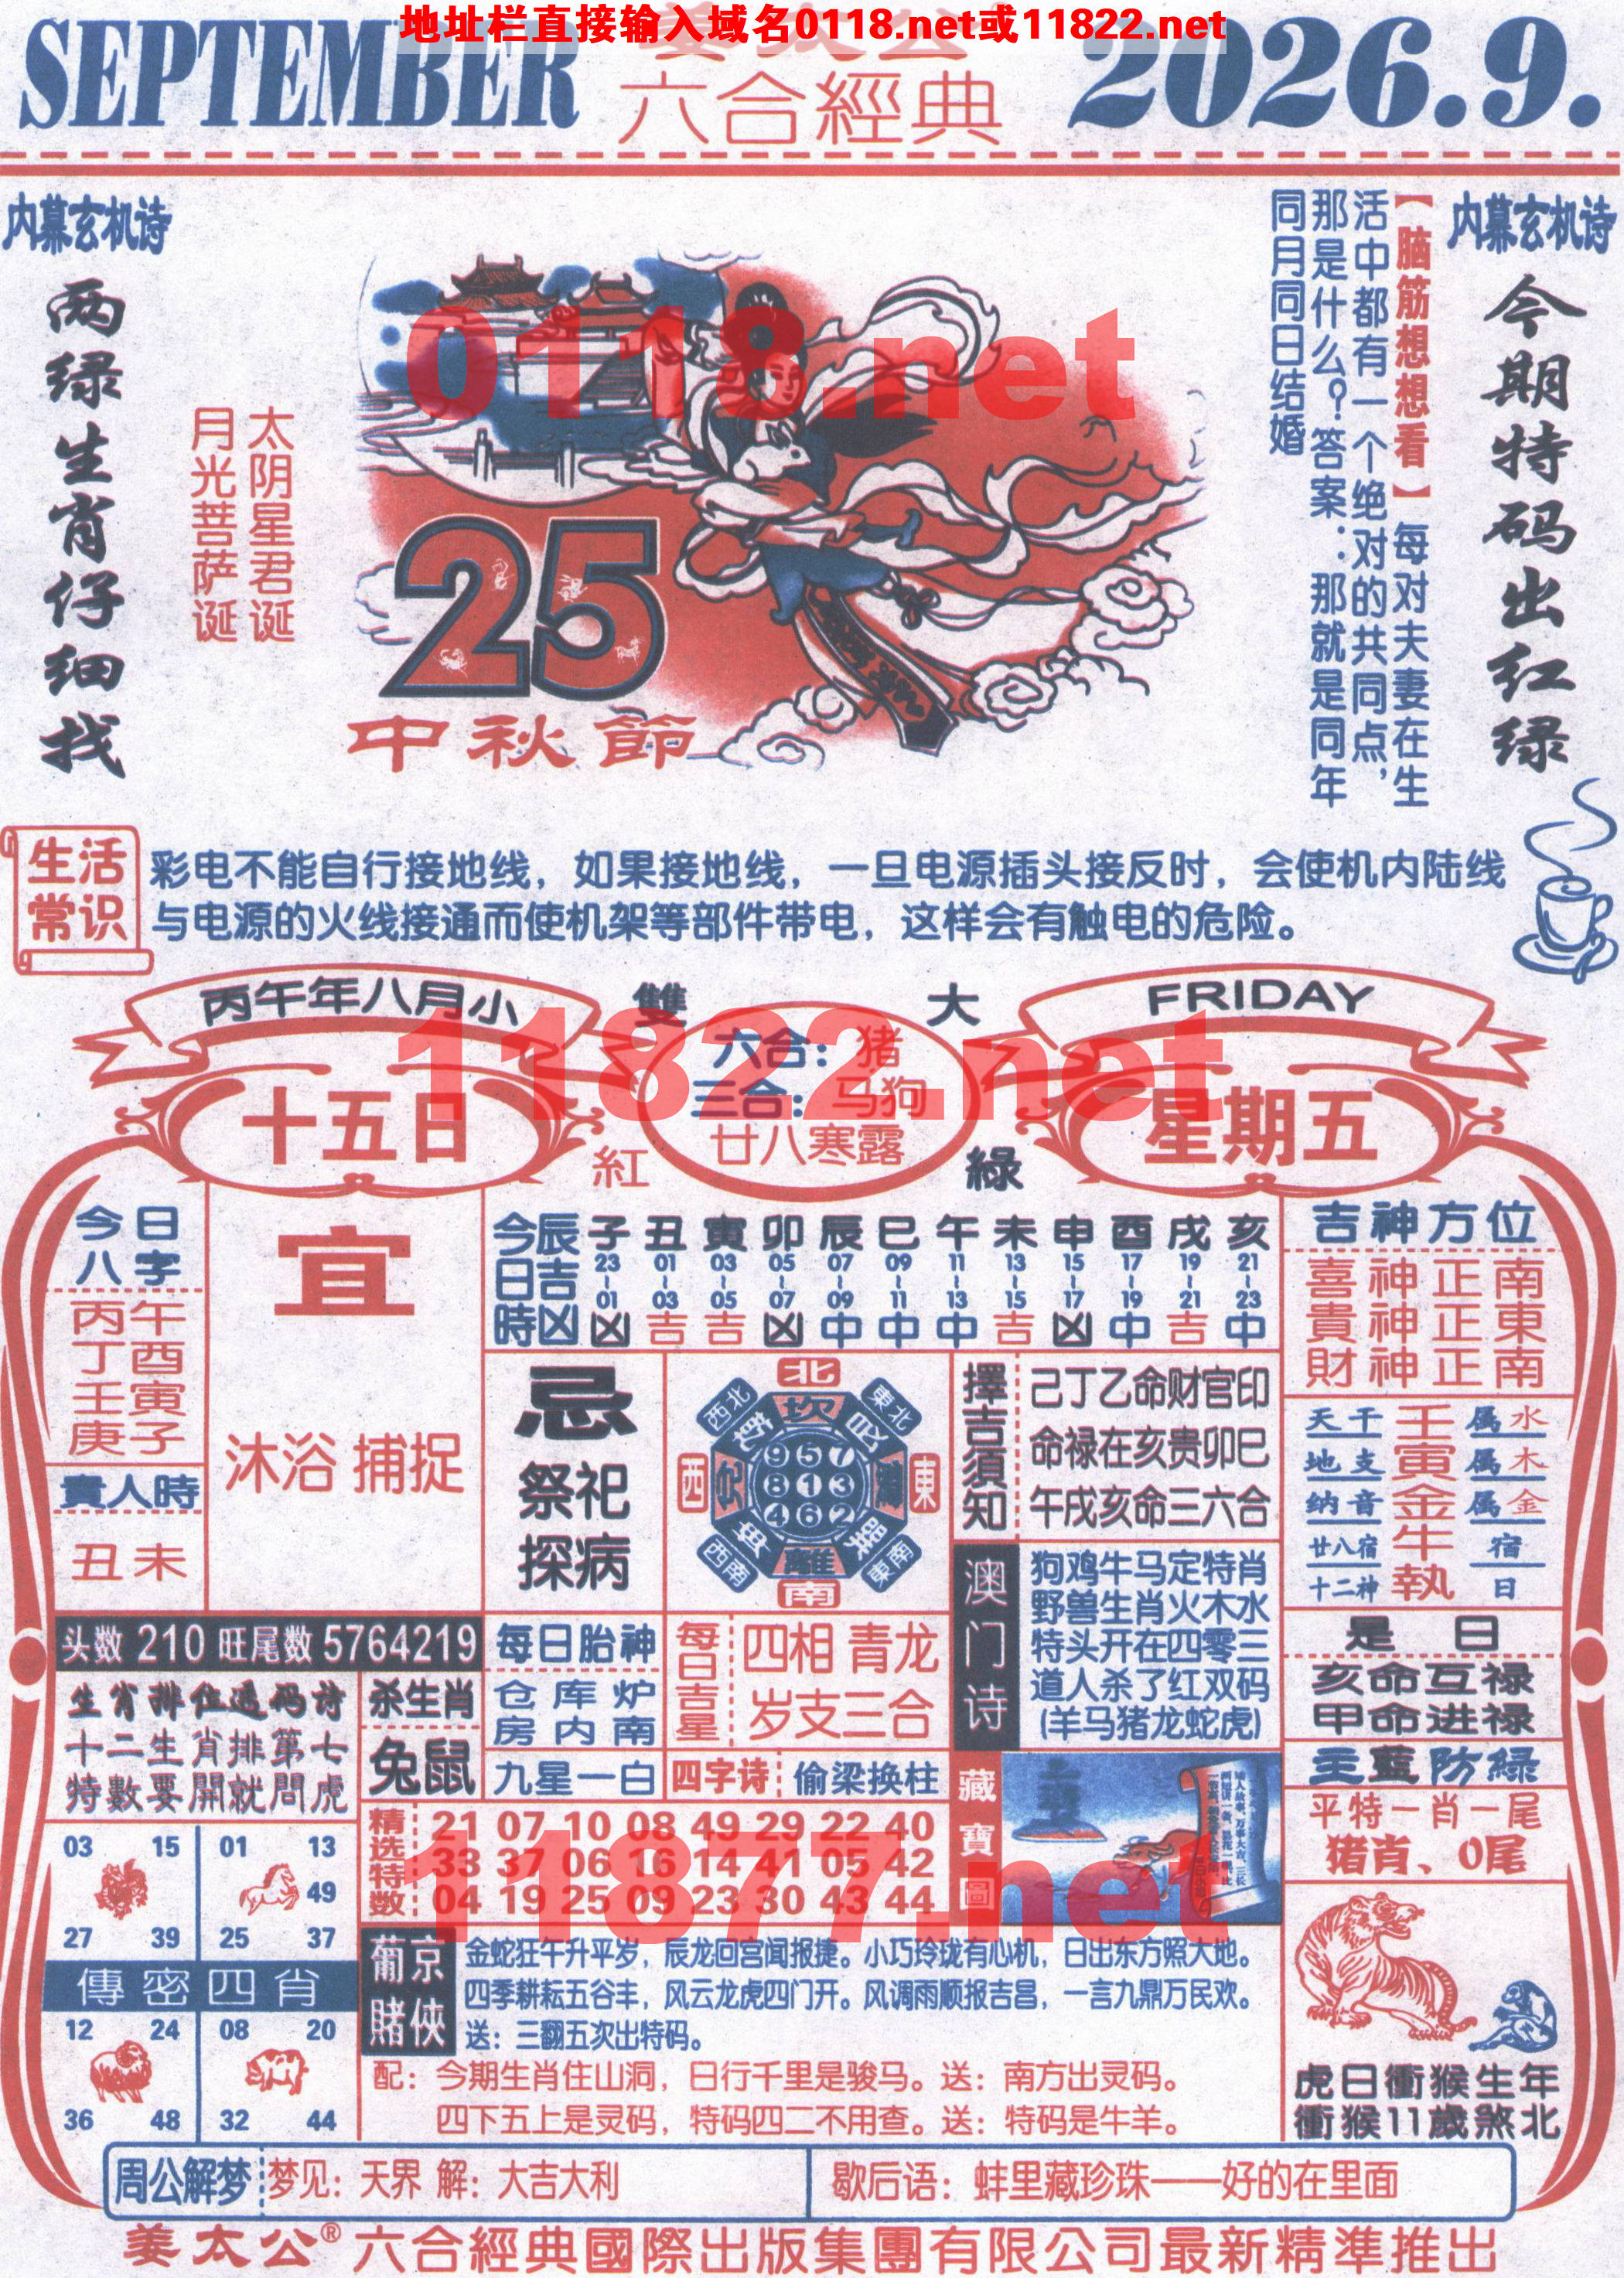 地址栏直接输入域名0118.net或11822.net
SEPTEMBER
姜太公
六合經典
2026.9.
内幕玄机诗
两绿生肖仔细找
太阴星君诞
月光菩萨诞
0118.net
25
中秋節
【脑筋想想看】每对夫妻在生
活中都有一个绝对的共同点，
那是什么？答案：那就是同年
同月同日结婚
内幕玄机诗
今期特码出红绿
生活
常识
彩电不能自行接地线，如果接地线，一旦电源插头接反时，会使机内陆线
与电源的火线接通而使机架等部件带电，这样会有触电的危险。
丙午年八月小
十五日
雙
大
紅
綠
六合：猪
三合：马狗
廿八寒露
11822.net
FRIDAY
星期五
今日
八字
丙午
丁酉
壬寅
庚子
貴人時
丑未
宜
沐浴 捕捉
今辰
日吉
時凶
子 丑 寅 卯 辰 巳 午 未 申 酉 戌 亥
23-01 01-03 03-05 05-07 07-09 09-11 11-13 13-15 15-17 17-19 19-21 21-23
凶 吉 吉 凶 中 中 中 吉 凶 中 吉 中
忌
祭祀
探病
北
西北
東北
西
東
西南
東南
南
坎
離
957
813
462
擇吉須知
己丁乙命财官印
命禄在亥贵卯巳
午戌亥命三六合
吉神方位
喜神正南
貴神正東
財神正南
天干 壬 属水
地支 寅 属木
纳音 金 属金
廿八宿 牛 宿
十二神 執 日
头数 210 旺尾数 5764219
生肖排位透码诗
十二生肖排第七
特數要開就問虎
杀生肖
兔鼠
每日胎神
仓库炉
房内南
九星一白
每日吉星
四相 青龙
岁支三合
四字诗
偷梁换柱
澳门诗
狗鸡牛马定特肖
野兽生肖火木水
特头开在四零三
道人杀了红双码
(羊马猪龙蛇虎)
是日
亥命互禄
甲命进禄
主藍防綠
平特一肖一尾
猪肖、0尾
精选特数
21 07 10 08 49 29 22 40
33 37 06 16 14 41 05 42
04 19 25 09 23 30 43 44
藏寶圖
11877.net
03 15
27 39
01 13
49
25 37
傳密四肖
12 24
36 48
08 20
32 44
葡京
賭俠
金蛇狂午升平岁，辰龙回宫闻报捷。小巧玲珑有心机，日出东方照大地。
四季耕耘五谷丰，风云龙虎四门开。风调雨顺报吉昌，一言九鼎万民欢。
送：三翻五次出特码。
配：今期生肖住山洞，日行千里是骏马。送：南方出灵码。
四下五上是灵码，特码四二不用查。送：特码是牛羊。
虎日衝猴生年
衝猴11歲煞北
周公解梦
梦见：天界 解：大吉大利
歇后语：蚌里藏珍珠——好的在里面
姜太公®六合經典國際出版集團有限公司最新精準推出